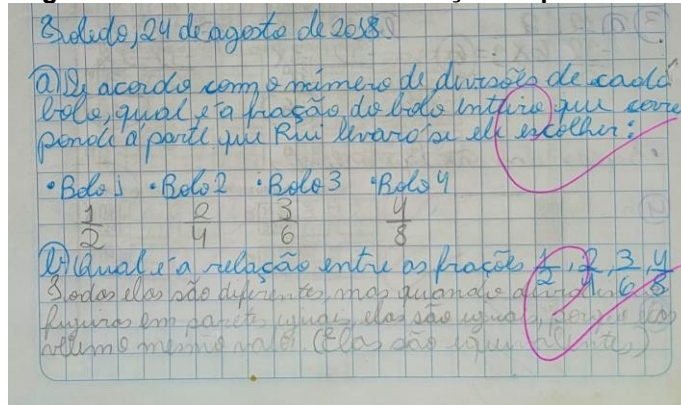 Toledo, 24 de agosto de 2018.
a) De acordo com o número de divisões de cada
bolo, qual é a fração do bolo inteiro que corre
ponde a parte que Rui levará se ele escolher:
• Bolo 1 • Bolo 2 • Bolo 3 • Bolo 4
1/2 2/4 3/6 4/8
b) Qual é a relação entre as frações 1/2, 2/4, 3/6, 4/8
Todas elas são diferentes, mas quando
figuras em partes iguais, elas são iguais,
mesmo valor. (Elas são equivalentes)